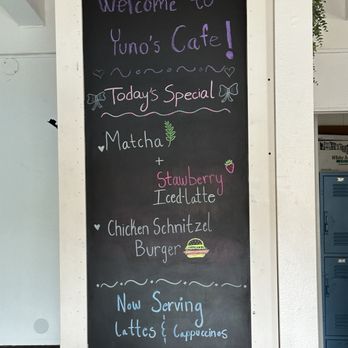 Welcome to
Yuno's Cafe!
Today's Special
Matcha
+
Stawberry
Iced-latte
Chicken Schnitzel
Burger
Now Serving
Lattes & Cappuccinos